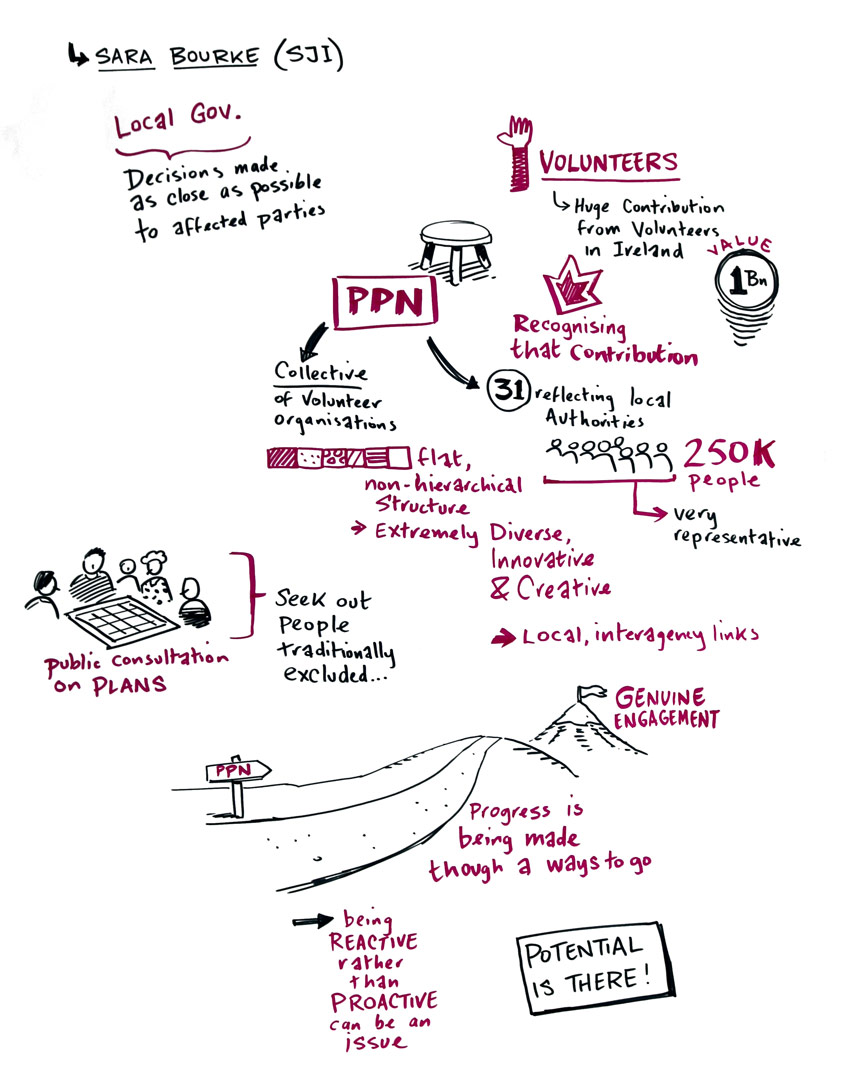 ↳ SARA BOURKE (SJI)
Local Gov.
Decisions made
as close as possible
to affected parties
VOLUNTEERS
↳ Huge Contribution
from Volunteers
in Ireland
VALUE
1Bn
Recognising
that Contribution
PPN
Collective
of Volunteer
Organisations
31 reflecting local
Authorities
flat,
non-hierarchical
Structure
→ Extremely Diverse,
Innovative
& Creative
250K
People
very
representative
→ Local, interagency links
Public Consultation
on PLANS
Seek out
People
traditionally
excluded...
GENUINE
ENGAGEMENT
PPN
Progress is
being made
though a ways to go
→ being
REACTIVE
rather
than
PROACTIVE
can be an
issue
POTENTIAL
IS THERE!